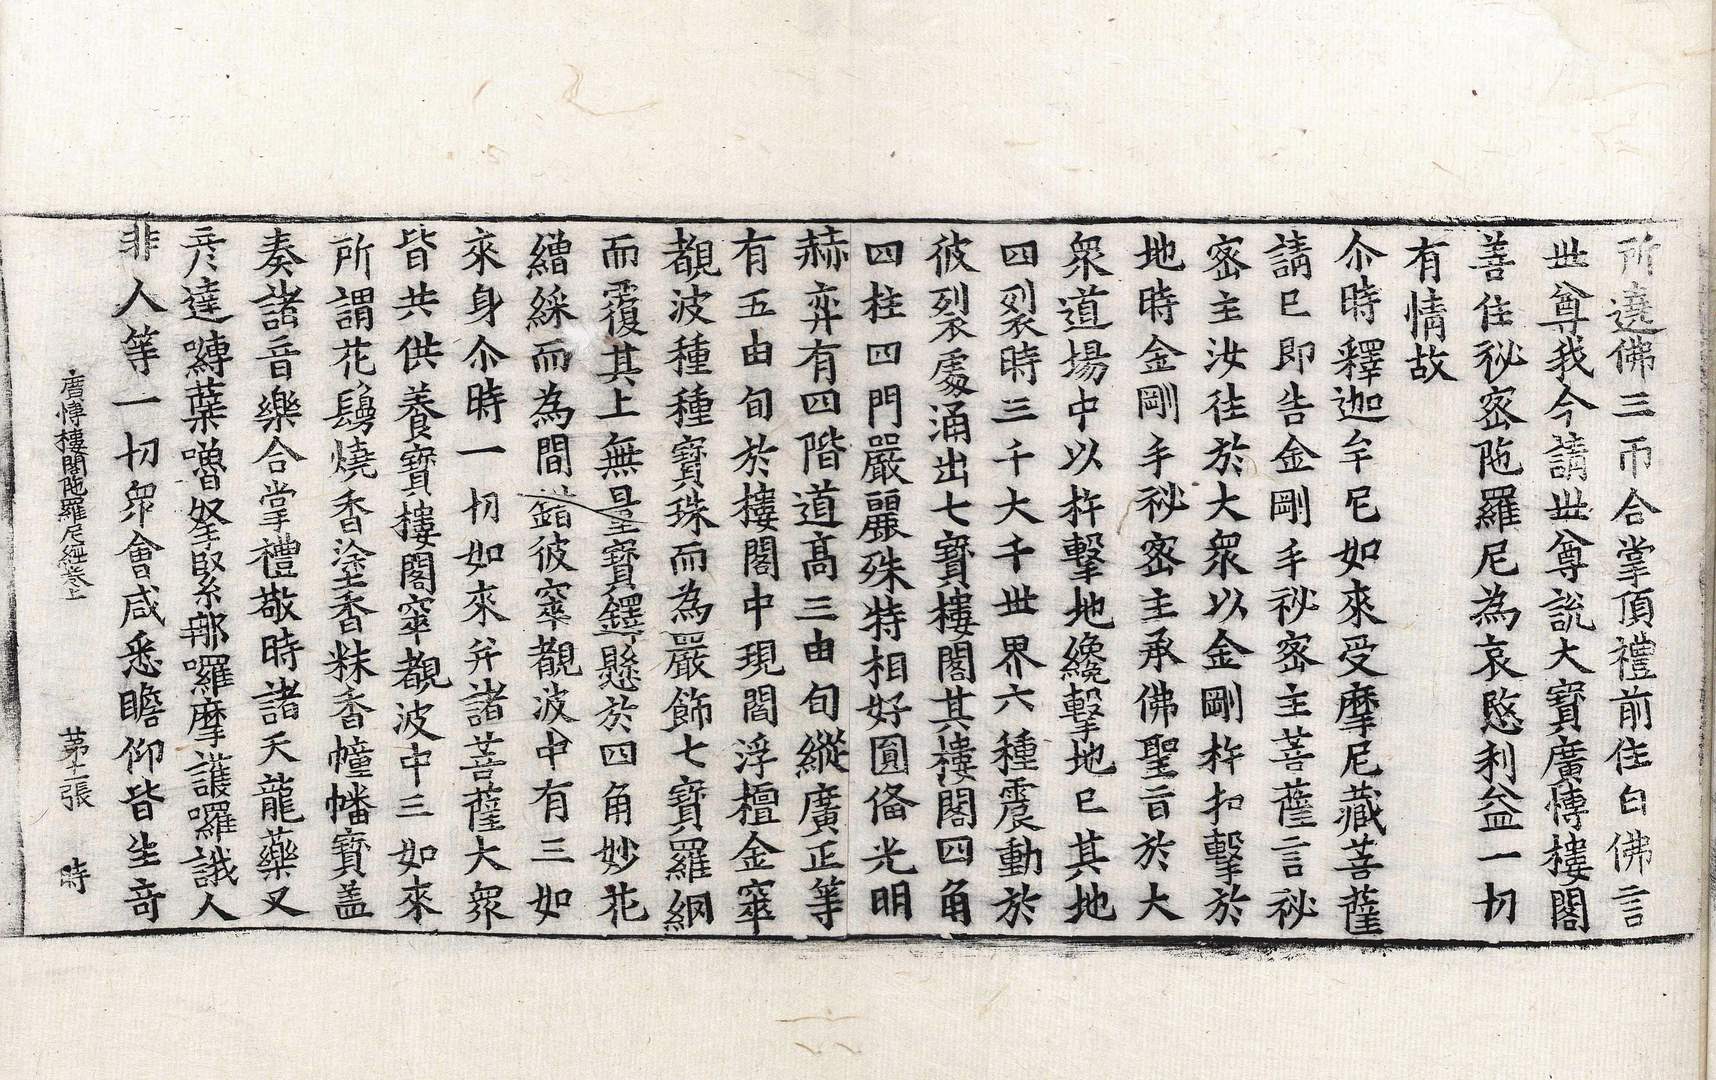 所遶佛三帀合掌頂禮前住白佛言
世尊我今請世尊說大寶廣愽樓閣
善住祕密陁羅尼為哀愍利益一切
有情故
尒時釋迦牟尼如來受摩尼藏菩薩
請已即告金剛手祕密主菩薩言祕
密主汝往於大衆以金剛杵扣擊於
地時金剛手祕密主承佛聖旨於大
衆道場中以杵擊地纔擊地已其地
四裂時三千大千世界六種震動於
彼裂處涌出七寶樓閣其樓閣四角
四柱四門嚴麗殊特相好圓俻光明
赫弈有四階道高三由旬縱廣正等
有五由旬於樓閣中現閻浮檀金窣
覩波種種寶珠而為嚴飾七寶羅網
而覆其上無量寶鐸懸於四角妙花
繒綵而為間錯彼窣覩波中有三如
來身尒時一切如來幷諸菩薩大衆
皆共供養寶樓閣窣覩波中三如來
所謂花鬘燒香塗香粖香幢幡寶盖
奏諸音樂合掌禮敬時諸天龍藥叉
彥達嚩蘖嚕拏緊那囉摩護囉誐人
非人等一切衆會咸悉瞻仰皆生奇
廣愽樓閣陁羅尼經卷上 第十二張 時